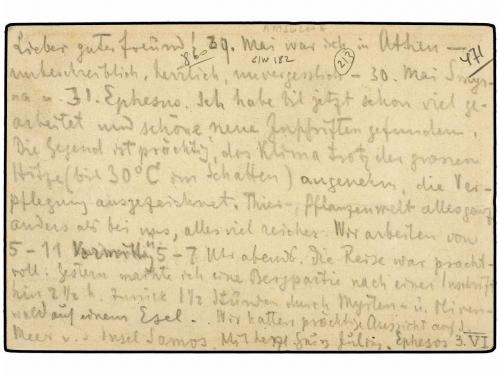 Lieber guter Freund! 29. Mai war ich in Athen —
unbeschreiblich, herrlich, unvergesslich – 30. Mai Smyr-
na u. 31. Ephesus. Ich habe bis jetzt schon viel ge-
arbeitet und schöne neue Inschriften gefunden.
Die Gegend ist prächtig, das Klima trotz der grossen
Hitze (bis 30°C im Schatten) angenehm, die Ver-
pflegung ausgezeichnet. Thier-, Pflanzenwelt alles ganz
anders als bei uns, alles viel reicher. Wir arbeiten von
5–11 Vormittag 5–7 Uhr abends. Die Reise war pracht-
voll. Gestern machte ich eine Bergpartie nach einer Inschrift
hin 2½ h. zurück 1½ Stunden durch Myrten- u. Oliven-
wald auf einem Esel. Wir hatten prächtige Aussicht auf d.
Meer u. d. Insel Samos. Mit Ephesos 3.VI
83-
SW 182
213
471